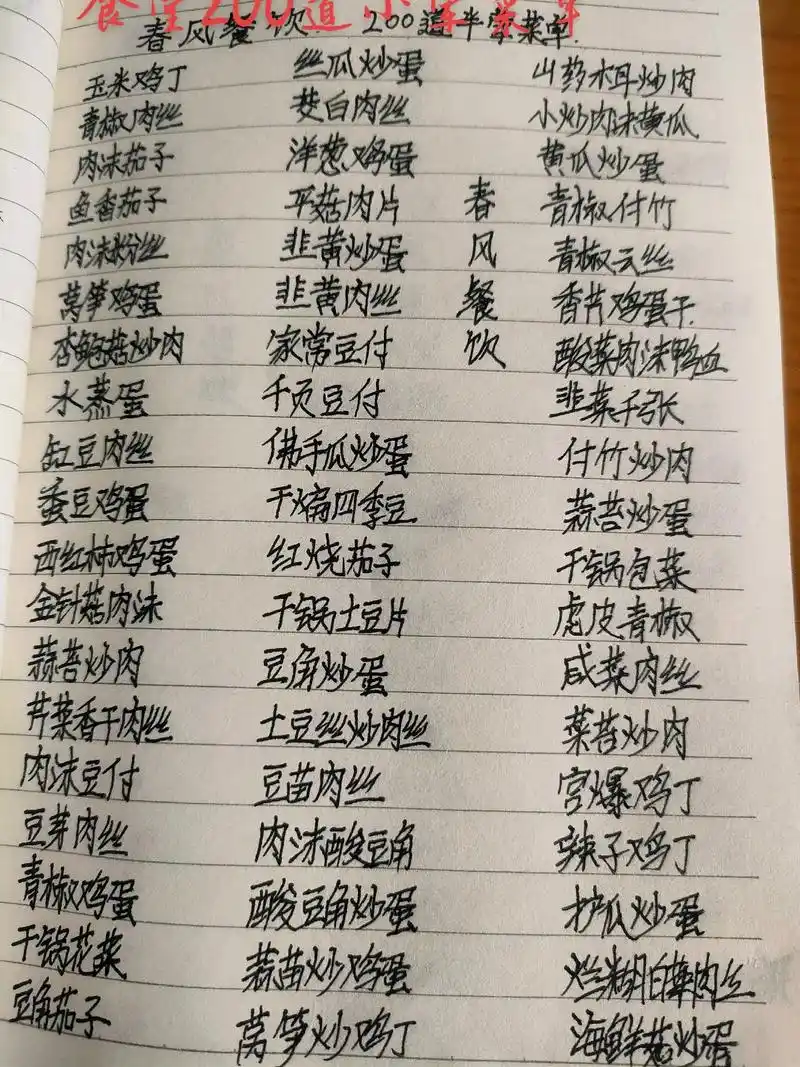 食堂200道小荤菜单
春风餐饮 200道半荤菜单.
玉米鸡丁
青椒肉丝
肉沫茄子
鱼香茄子
肉沫粉丝
莴笋鸡蛋
杏鲍菇炒肉
水蒸蛋
缸豆肉丝
蚕豆鸡蛋
西红柿鸡蛋
金针菇肉沫
蒜苔炒肉
芹菜香干肉丝
肉沫豆付
豆芽肉丝
青椒鸡蛋
干锅花菜
豆角茄子
丝瓜炒蛋
茭白肉丝
洋葱鸡蛋
平菇肉片
韭黄炒蛋
韭黄肉丝
家常豆付
千页豆付
佛手瓜炒蛋
干煸四季豆
红烧茄子
干锅土豆片
豆角炒蛋
土豆丝炒肉丝
豆苗肉丝
肉沫酸豆角
酸豆角炒蛋
蒜苗炒鸡蛋
莴笋炒鸡丁
春风餐饮
山药木耳炒肉
小炒肉沫黄瓜
黄瓜炒蛋
青椒付竹
青椒云丝
香芹鸡蛋干
酸菜肉沫鸭血
韭菜千张
付竹炒肉
蒜苔炒蛋
干锅包菜
虎皮青椒
咸菜肉丝
菜苔炒肉
宫爆鸡丁
辣子鸡丁
护瓜炒蛋
烂糊白菜肉丝
海鲜菇炒蛋